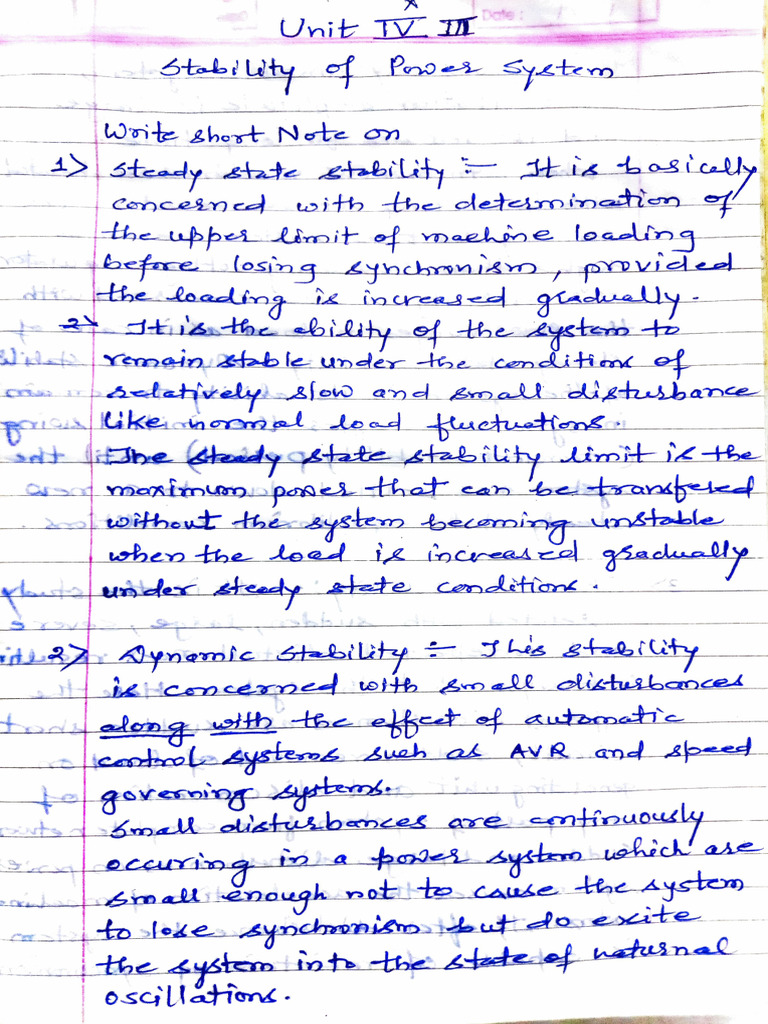 Date :
Unit IV III
Stability of Power System
Write short Note on
1> Steady state stability :- It is basically
concerned with the determination of
the upper limit of machine loading
before losing synchronism, provided
the loading is increased gradually.
2> It is the ability of the system to
remain stable under the conditions of
relatively slow and small disturbance
like normal load fluctuations.
The steady state stability limit is the
maximum power that can be transfered
without the system becoming unstable
when the load is increased gradually
under steady state conditions.
2> Dynamic Stability :- This stability
is concerned with small disturbances
along with the effect of automatic
control systems such as AVR and speed
governing systems.
Small disturbances are continuously
occuring in a power system which are
small enough not to cause the system
to lose synchronism but do exite
the system into the state of naturnal
oscillations.